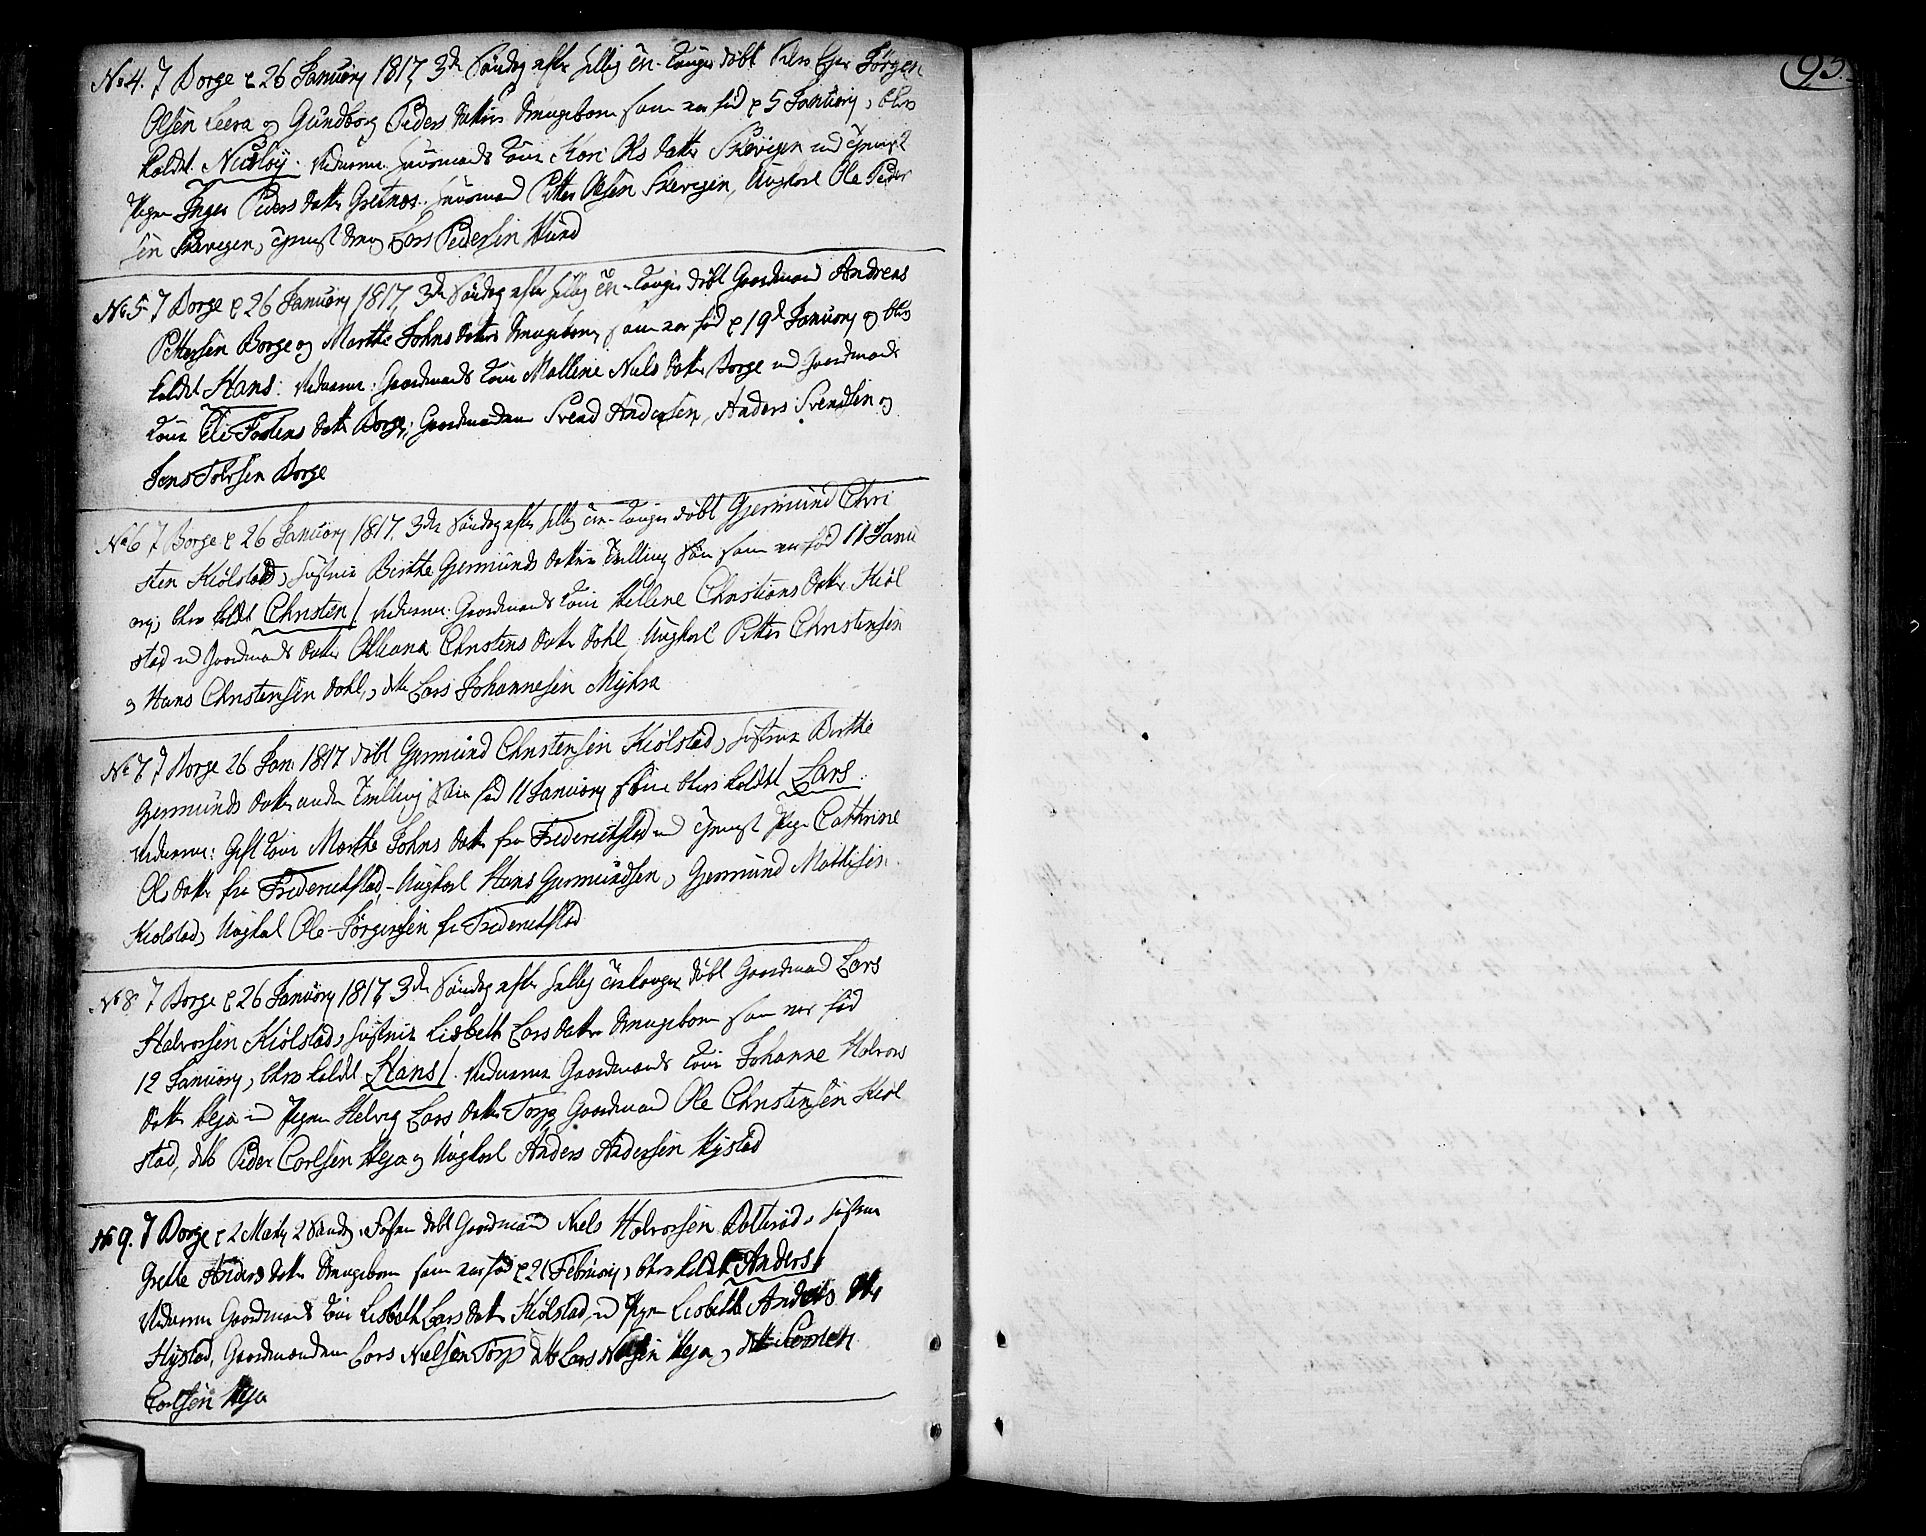 No 4. I Borge d 26 Januarj 1817, 3de Søndag efter hellig 3 Konger døbt Jørgen
Olsen Leera og Gundborg Peders datters Drengebarn som var fød d 5 Januarj, blev
kaldet Nicoloÿ. Fadderne: Huusmands Kone Kari Ols datter Skevigen
Inger Peders datter Greenes. Huusmand Petter Olsen Skevigen, Ungkarl Ole Peder
sen Skevigen, Lars Pedersen Hund
No 5 I Borge d 26 Januarj 1817, 3de Søndag efter hellig 3 Konger døbt Gaardmand Andreas
Pettersen Borge og Marthe Johns datters Drengebarn, som var fød d 19de Januarj og blev
kaldet Hans. Fadderne: Gaardmands Kone Mallene Niels datter Borge Gaardmands
Kone Eli Tostens datter Borge, Gaardmændene Svend Andersen, Anders Svendsen og
Jens Tolvsen Borge
No 6 I Borge d 26 Januarj 1817. 3de Søndag efter hellig 3 Konger døbt Gjermund Chri
sten Kiølstad, Hustrue Birthe Gjermunds datters Tvilling Søn som var fød 11 Janu
arj, blev kaldt Christen/ Fadderne: Gaardmands Kone Hellene Christians datter Kiøl
stad Gaardmands datter Olleana Christens datter Dahl, Ungkarl Petter Christensen
og Hans Christensen Dahl, dtto Lars Johannesen Mÿhra
No 7 I Borge 26 Jan 1817 døbt Gjermund Christensen Kiølstad, Hustrue Birthe
Gjermunds datters anden Tvilling Søn fød 11 Januarj blev kaldet Lars.
Fadderne: Gift Kone Marthe Johns datter fra Friderichstad Pige Cathrine
Ols datter fra Friderichstad, Ungkarl Hans Gjermundsen, Gjermund Mathisen
Kiolstad, Ungkarl Ole Jørgensen fr Friderichstad
No 8 I Borge d 26 Januarj 1817, 3de Søndag efter hellig 3 Konger døbt Gaardmand Lars
Halvorsen Kiølstad, Hustrue Lisbeth Lars datters Drengebarn som var fød
12 Januarj, blev kaldet Hans/. Fadderne Gaardmands Kone Johanne Halvors
datter Heja Pigen Helvig Lars datter Torp, Gaardmand Ole Christensen Kiøl
stad, dtto Peder Carlsen Heja og Ungkarl Anders Andersen Hÿstad
No 9. I Borge d 2 Martj 2 Søndag i Fasten døbt Gaardmand Niels Halvorsen Hustrue
Grethe Anders datters Drengebarn som var fød d 21 Februarj, blev kaldet Anders/
Fadderne Gaardmands Kone Lisbeth Lars datter Kiølstad, Pigen Lisbeth Anders
Hÿstad, Gaardmændene Lars Nielsen Torp dtto Lars Heja, dtto
Carlsen Heja
95.